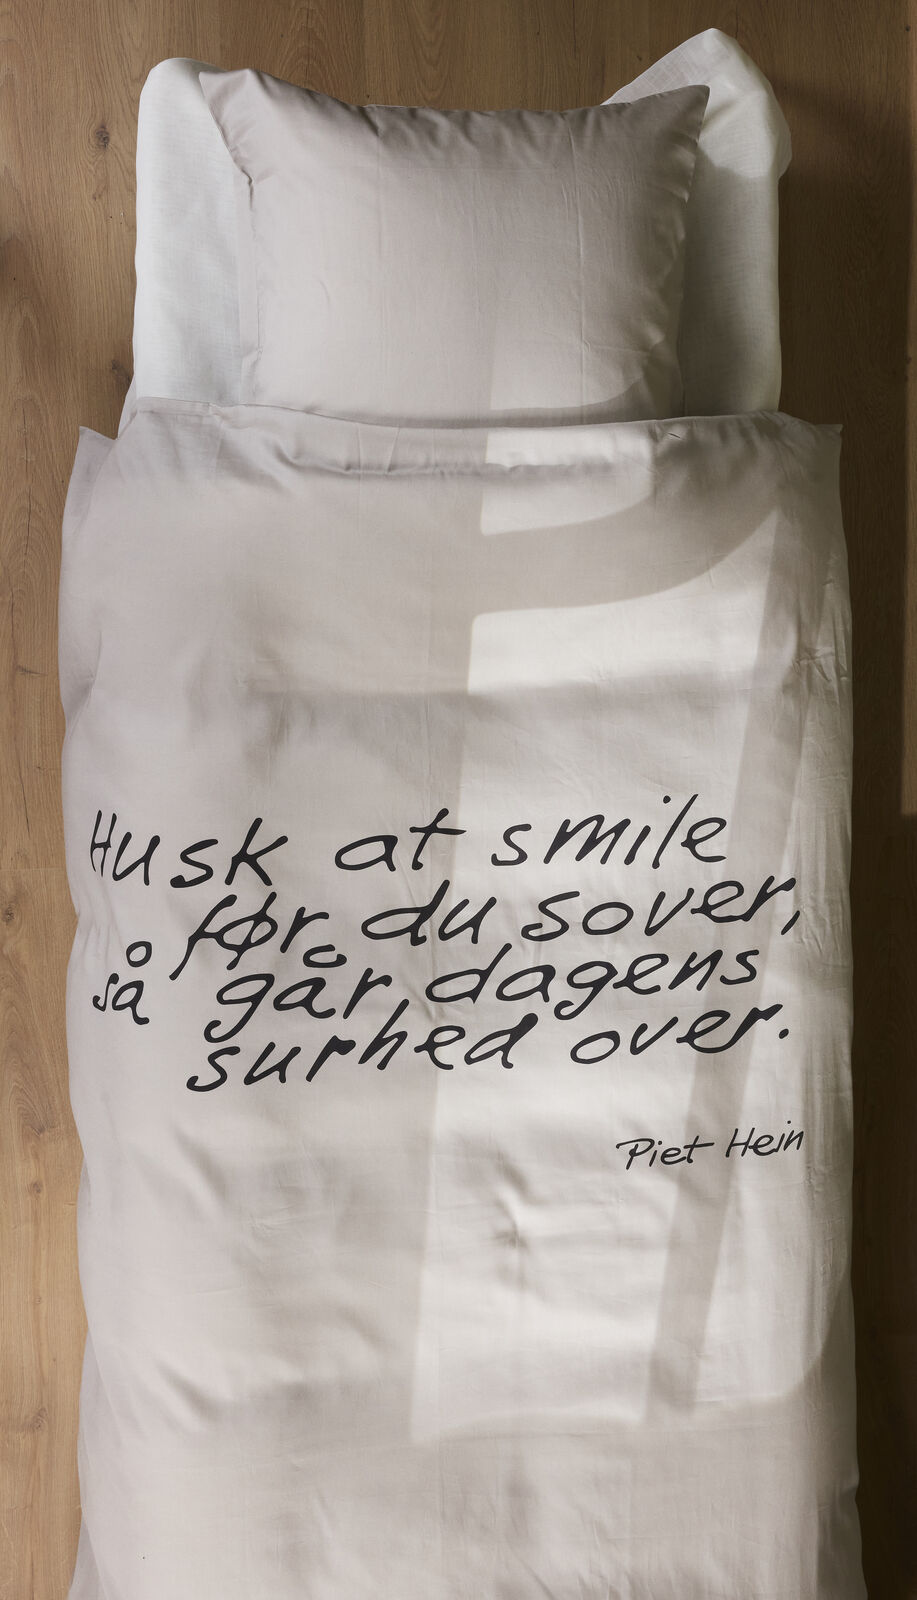 Husk at smile
før du sover,
så går dagens
surhed over.
Piet Hein